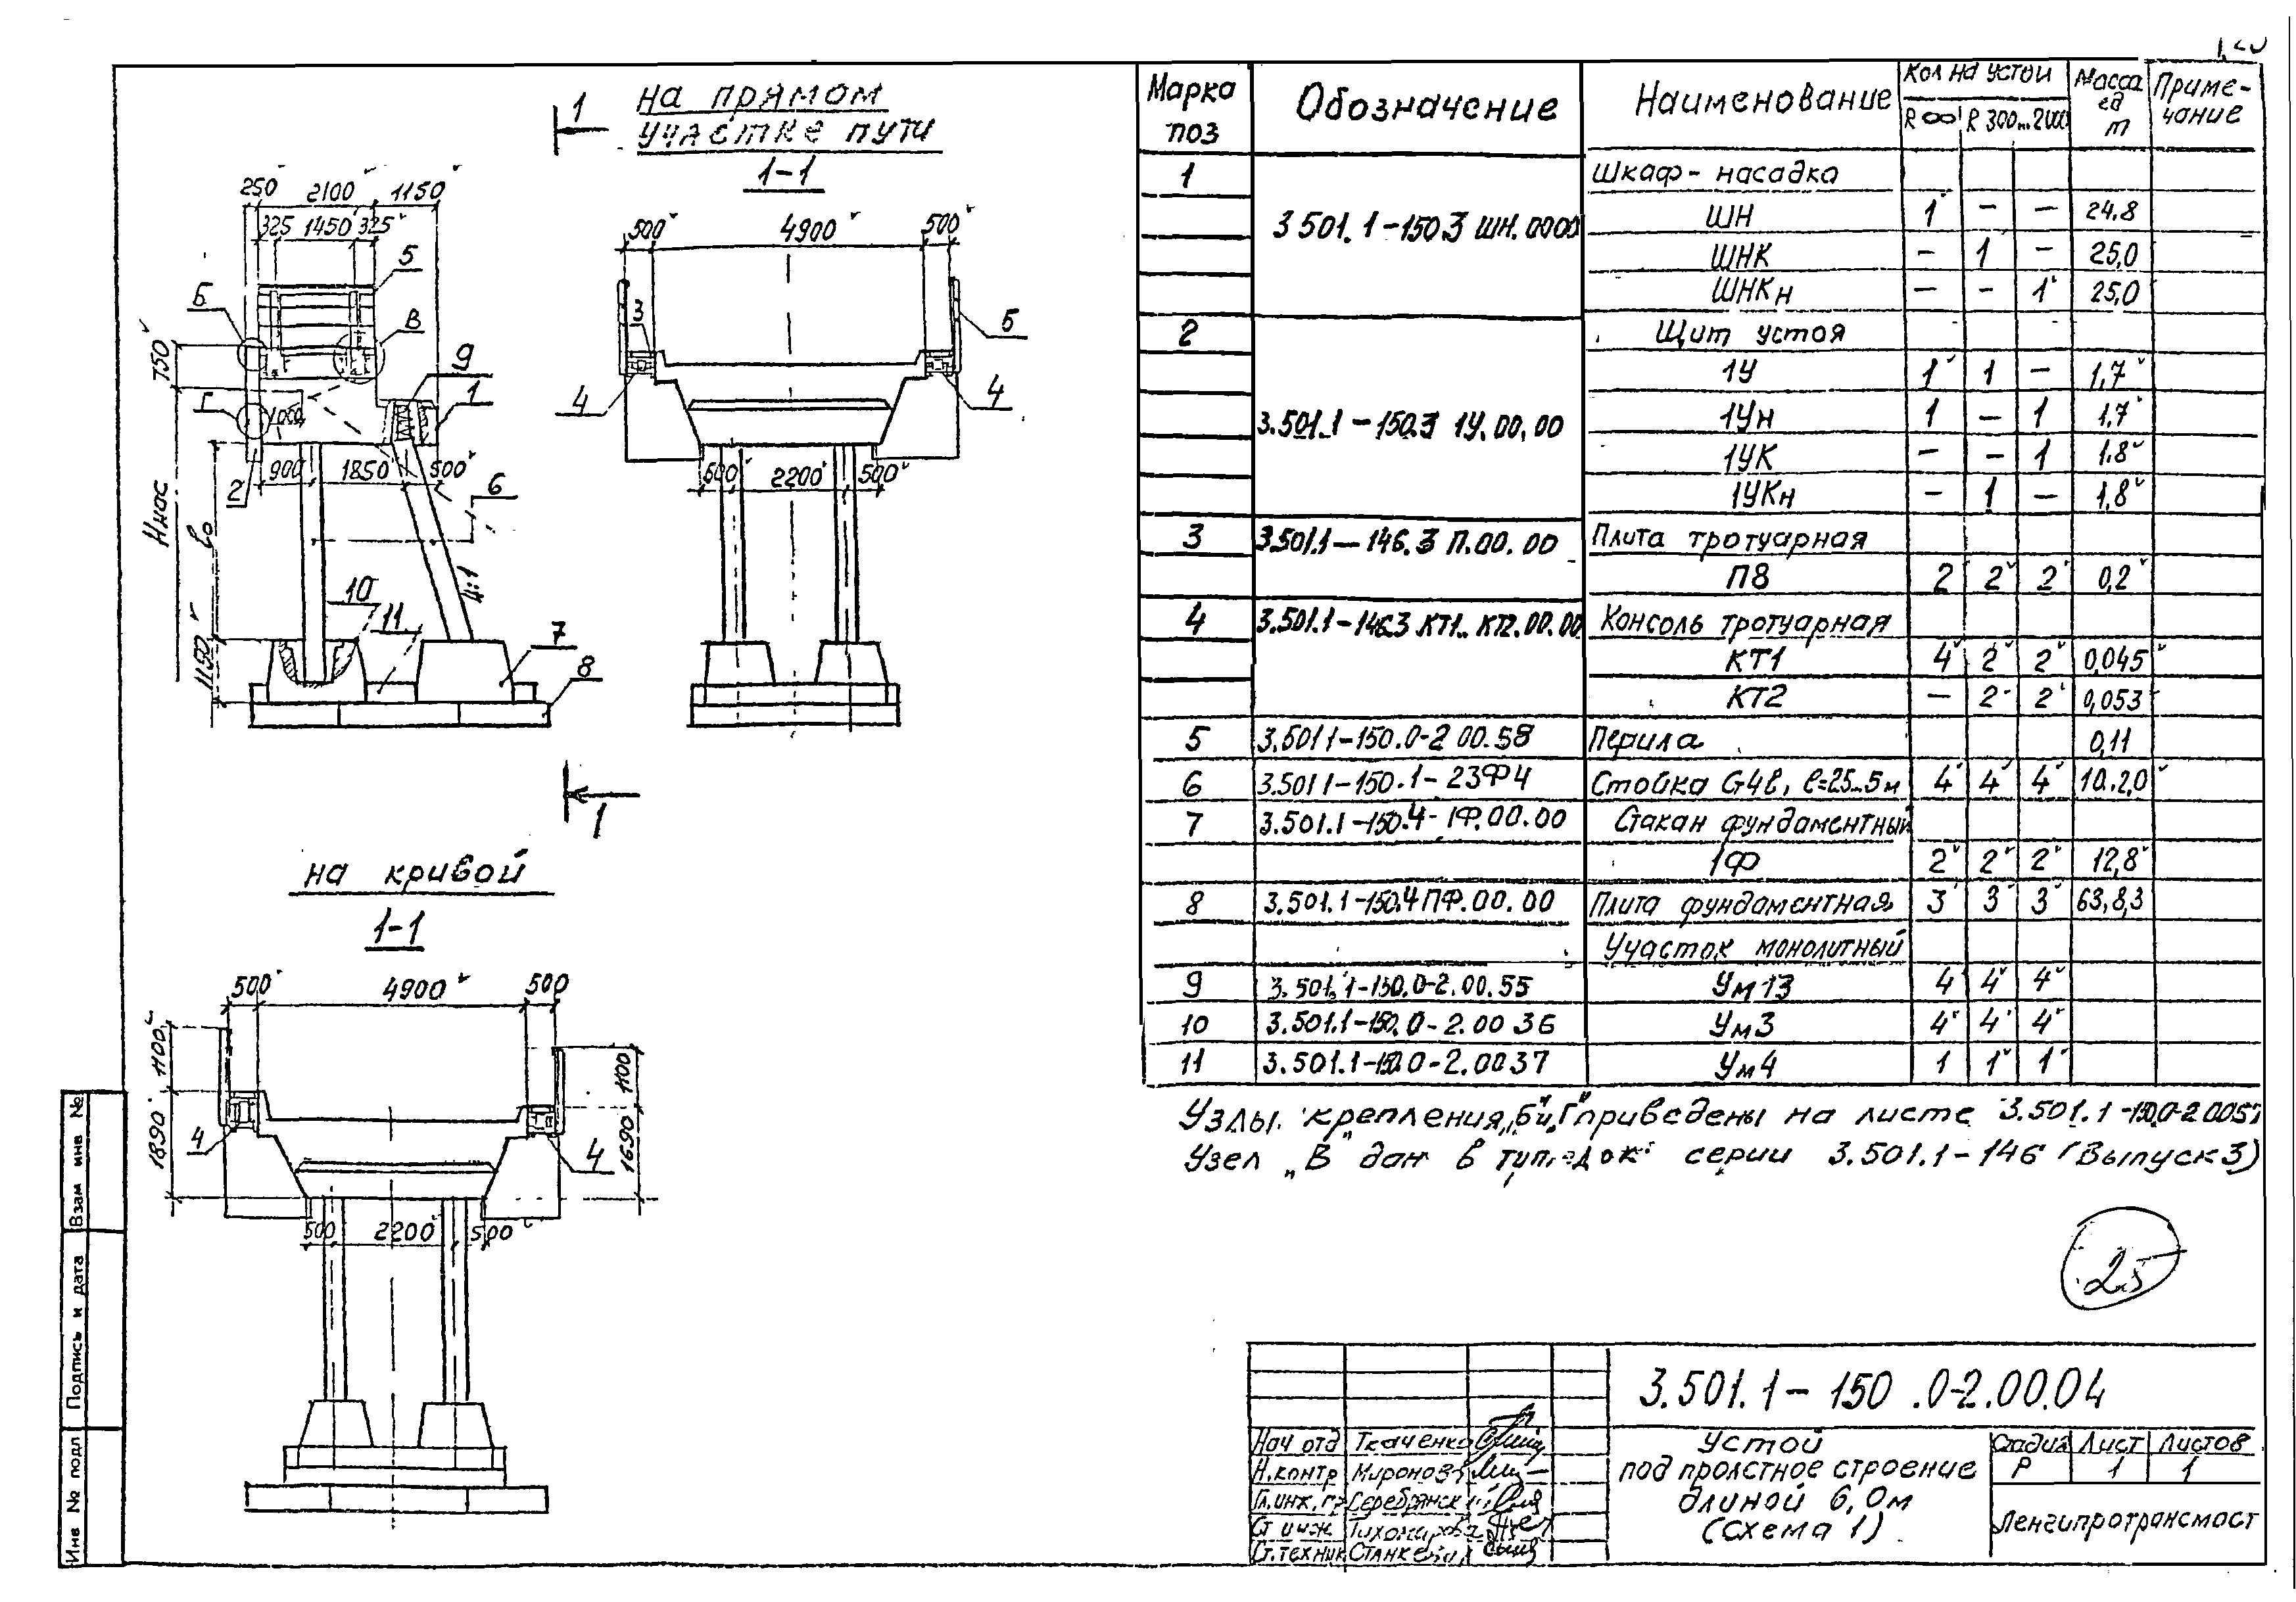 на прямом
участке пути
1-1
1
250 2100 1150
325 1450 325
5
Б
В
9
750
Г
1
900 1850 500
2
6
Ннас
ℓ₀
10
11
4:1
7
8
1150
500 4900 500
3
5
4
4
500 2200 500
1
на кривой
1-1
500 4900 500
1100
1100
1890
4
4
1690
500 2200 500
Марка поз Обозначение Наименование Кол на устой Масса ед т Приме-чание
R ∞ R 300...2000
1 3.501.1-150.3 ШН.0000 Шкаф-насадка
ШН 1 — — 24.8
ШНК — 1 — 25,0
ШНКн — — 1 25,0
2 3.501.1-150.3 1У.00.00 Щит устоя
1У 1 1 — 1,7
1Ун 1 — 1 1,7
1УК — — 1 1.8
1УКн — 1 — 1,8
3 3.501.1-146.3 П.00.00 Плита тротуарная
П8 2 2 2 0,2
4 3.501.1-146.3.КТ1..КТ2.00.00 Консоль тротуарная
КТ1 4 2 2 0,045
КТ2 — 2 2 0,053
5 3.501 1-150.0-2 00.58 Перила 0,11
6 3.501 1-150.1-23Ф4 Стойка G4ℓ, ℓ=25..5м 4 4 4 1.0..2,0
7 3.501.1-150.4-1Ф.00.00 Стакан фундаментный
1Ф 2 2 2 12,8
8 3.501.1-150.4ПФ.00.00 Плита фундаментная 3 3 3 63,8,3
Участок монолитный
9 3.501.1-150.0-2.00.55 Ум13 4 4 4
10 3.501.1-150.0-2.00 36 Ум3 4 4 4
11 3.501.1-150.0-2.0037 Ум4 1 1 1
Узлы крепления „Б" и „Г" приведены на листе 3.501.1-150.0-2 0057
Узел „В" дан в тип. док. серии 3.501.1-146 (Выпуск 3)
25
3.501.1-150.0-2.00.04
Нач отд Ткаченко
Н.контр Миронова
Гл.инж.пр Серебрянский
Ст инж Тихомирова
Ст.техник
Устой
под пролетное строение
длиной 6,0м
(схема 1)
Стадия Лист Листов
Р 1 1
Ленгипротрансмост
Взам инв №
Подпись и дата
Инв № подл